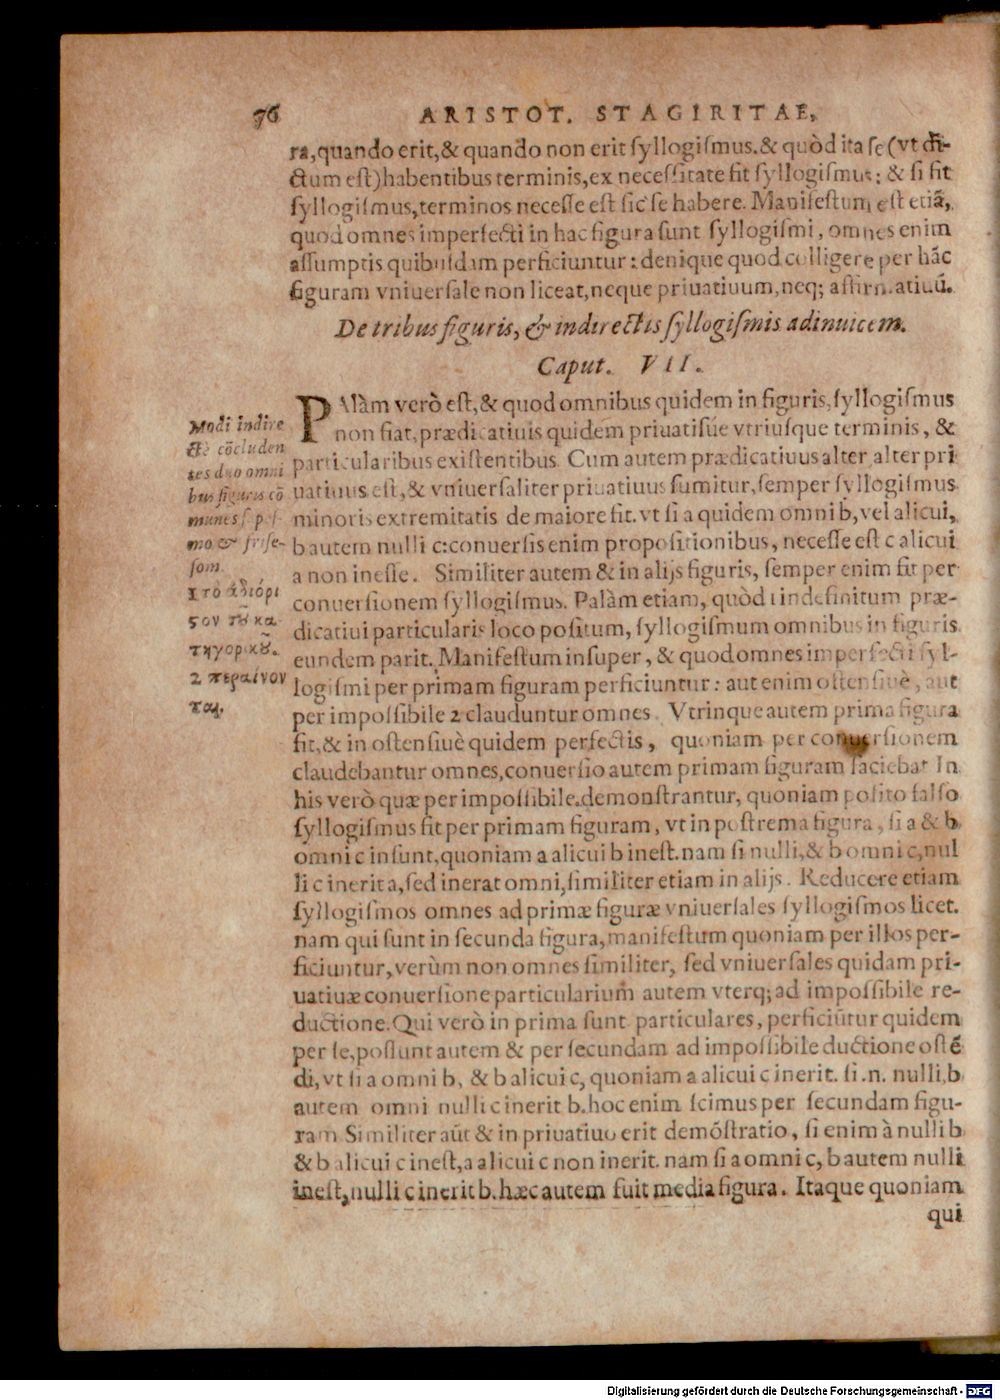 76 ARISTOT. STAGIRITAE,
ra, quando erit, & quando non erit syllogismus. & quòd ita se (vt di-
ctum est) habentibus terminis, ex necessitate fit syllogismus: & si sit
syllogismus, terminos necesse est sic se habere. Manifestum est etiā,
quod omnes imperfecti in hac figura sunt syllogismi, omnes enim
assumptis quibusdam perficiuntur: denique quod colligere per hāc
figuram vniuersale non liceat, neque priuatiuum, neq; affirmatiuū.
De tribus figuris, & indirectis syllogismis adinuicem.
Caput. VII.
PAlàm verò est, & quod omnibus quidem in figuris, syllogismus
non fiat, prædicatiuis quidem priuatisúe vtriusque terminis, &
particularibus existentibus. Cum autem prædicatiuus alter, alter pri
uatiuus est, & vniuersaliter priuatiuus sumitur, semper syllogismus
minoris extremitatis de maiore fit. vt si a quidem omni b, vel alicui,
b autem nulli c: conuersis enim propositionibus, necesse est c alicui
a non inesse. Similiter autem & in alijs figuris, semper enim fit per
conuersionem syllogismus. Palàm etiam, quòd 1 indefinitum præ-
dicatiui particularis loco positum, syllogismum omnibus in figuris
eundem parit. Manifestum insuper, & quod omnes imperfecti syl-
logismi per primam figuram perficiuntur: aut enim ostensiuè, aut
per impossibile 2 clauduntur omnes. Vtrinque autem prima figura
fit, & in ostensiuè quidem perfectis, quoniam per conuersionem
claudebantur omnes, conuersio autem primam figuram faciebat In
his verò quæ per impossibile demonstrantur, quoniam posito falso
syllogismus fit per primam figuram, vt in postrema figura, si a & b
omni c insunt, quoniam a alicui b inest. nam si nulli, & b omni c, nul
li c inerit a, sed inerat omni, similiter etiam in alijs. Reducere etiam
syllogismos omnes ad primæ figuræ vniuersales syllogismos licet.
nam qui sunt in secunda figura, manifestum quoniam per illos per-
ficiuntur, verùm non omnes similiter, sed vniuersales quidam pri-
uatiuæ conuersione particularium autem vterq; ad impossibile re-
ductione. Qui verò in prima sunt particulares, perficiūtur quidem
per se, possunt autem & per secundam ad impossibile ductione ostē
di, vt si a omni b, & b alicui c, quoniam a alicui c inerit. si .n. nulli, b
autem omni nulli c inerit b. hoc enim scimus per secundam figu-
ram Similiter aūt & in priuatiuo erit demōstratio, si enim à nulli b
& b alicui c inest, a alicui c non inerit. nam si a omni c, b autem nulli
inest, nulli c inerit b. hæc autem fuit media figura. Itaque quoniam
qui
Modi indire
ctè cōcluden
tes duo omni
bus figuris cō
munes
mo & frise-
som.
1 τὸ ἀδιόρι
ϛον τοῦ κα
τηγορικοῦ.
2 περαίνον
ται.
Digitalisierung gefördert durch die Deutsche Forschungsgemeinschaft - DFG